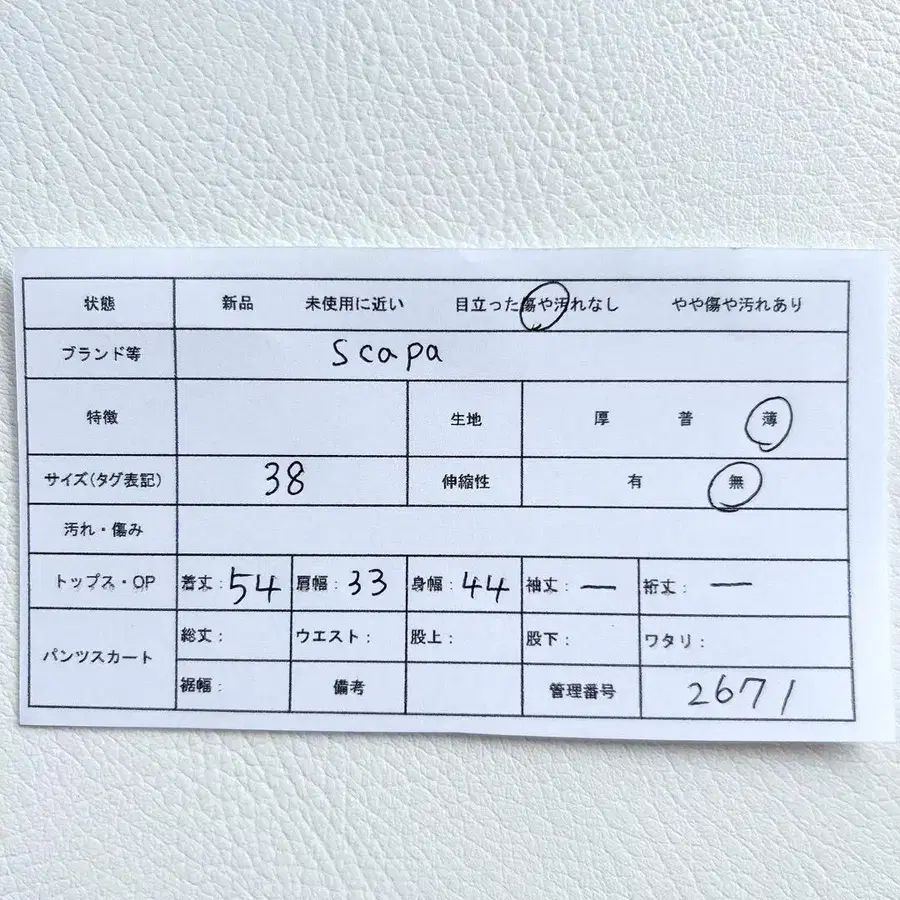 状態 新品 未使用に近い 目立った傷や汚れなし やや傷や汚れあり
ブランド等 Scapa
特徴 生地 厚 普 薄
サイズ(タグ表記) 38 伸縮性 有 無
汚れ・傷み
トップス・OP 着丈:54 肩幅:33 身幅:44 袖丈:— 裄丈:—
パンツスカート 総丈: ウエスト: 股上: 股下: ワタリ:
裾幅: 備考 管理番号 2671